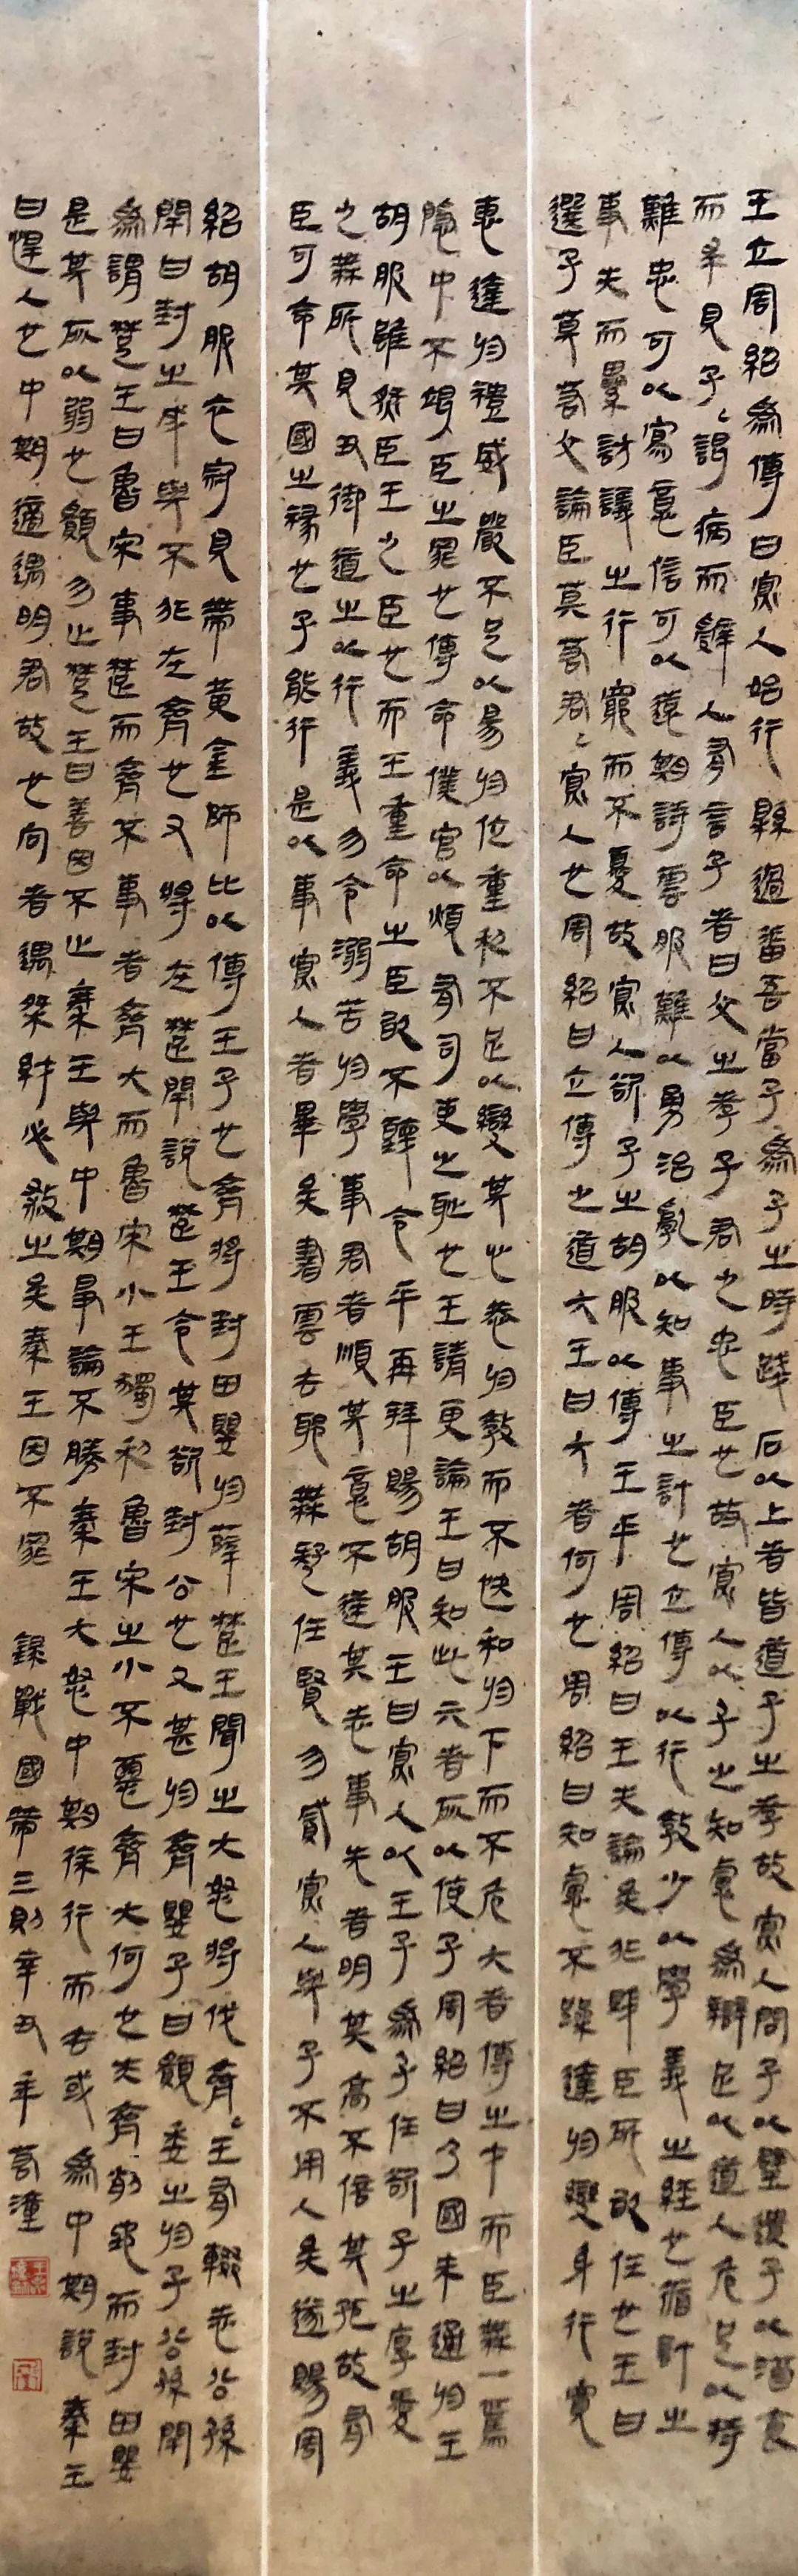 王立周紹為傅曰寡人始行縣過番吾當子為子之時踐石以上者皆道子之孝故寡人問子以璧遺子以酒食
而求見子〻謁病而辭人有言子者曰父之孝子君之忠臣也故寡人以子之知慮為辯足以道人危足以持
難忠可以寫意信可以遠期詩雲服難以勇治亂以知事之計也立傅以行教少以學義之經也循計之
事失而累訪議之行窮而不憂故寡人欲子之胡服以傅王乎周紹曰王失論矣非賤臣所敢任也王曰
選子莫若父論臣莫若君〻寡人也周紹曰立傅之道六王曰六者何也周紹曰知慮不躁達於變身行寬
惠達於禮威嚴不足以易於位重利不足以變其心恭於教而不快和於下而不危六者傅之才而臣無一焉
隱中不竭臣之罪也傅命僕官以煩有司吏之恥也王請更論王曰知此六者所以使子周紹曰乃國未通於王
胡服雖然臣王之臣也而王重命之臣敢不聽令乎再拜賜胡服王曰寡人以王子為子任欲子之厚愛
之無所見丑御道之以行義勿令溺苦於學事君者順其意不逆其志事先者明其高不倍其孤故有
臣可命其國之祿也子能行是以事寡人者畢矣書雲去邪無疑任賢勿貳寡人與子不用人矣遂賜周
紹胡服衣冠具帶黃金師比以傅王子也齊將封田嬰於薛楚王聞之大怒將伐齊〻王有輟志公孫
閈曰封之成與不非在齊也又將在楚閈說楚王令其欲封公也又甚於齊嬰子曰願委之於子公孫閈
為謂楚王曰魯宋事楚而齊不事者齊大而魯宋小王獨利魯宋之小不惡齊大何也夫齊削地而封田嬰
是其所以弱也願勿止楚王曰善因不止秦王與中期爭論不勝秦王大怒中期徐行而去或為中期說秦王
曰悍人也中期適遇明君故也向者遇桀紂必殺之矣秦王因不罪 錄戰國策三則辛丑年